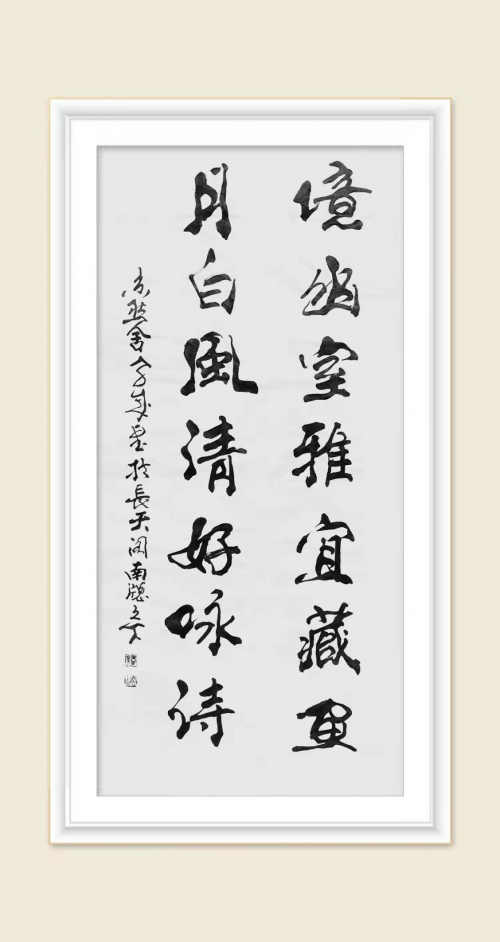 境幽室雅宜藏画
月白風清好咏诗
舍於長天閣南窗之